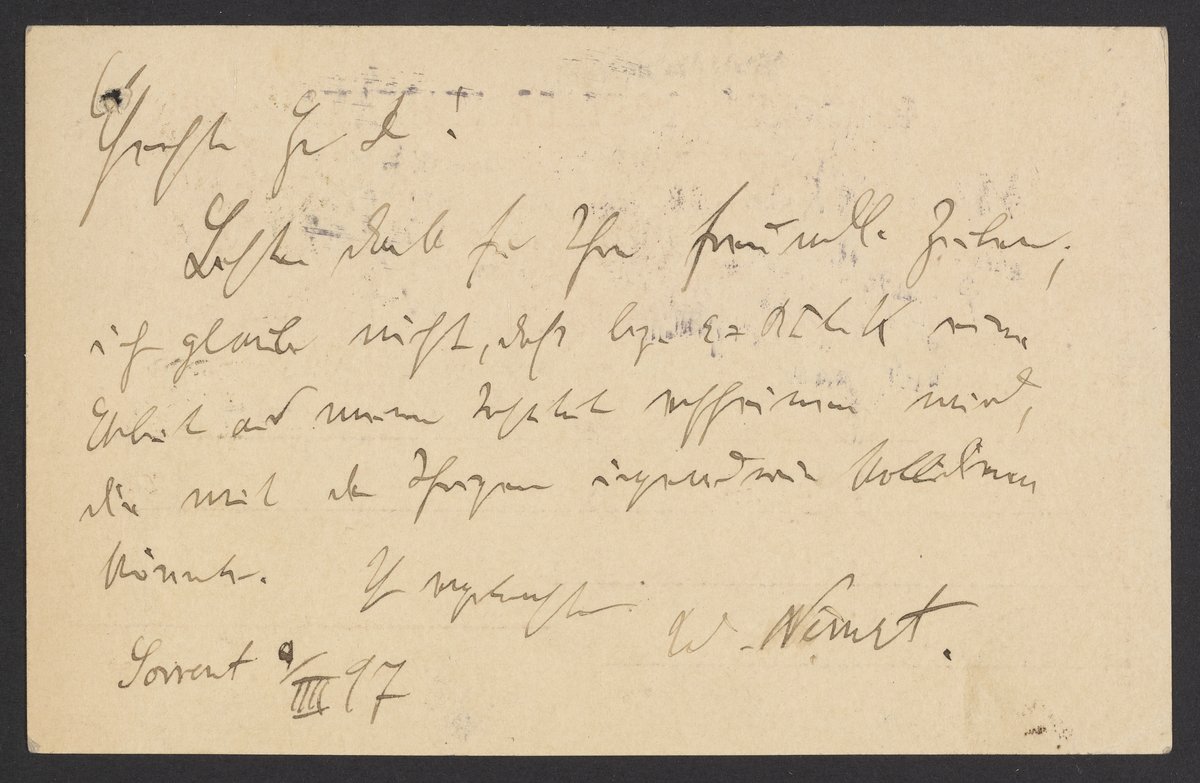 Geehrter Hr D!
Besten Dank für Ihre freundl. Zeilen,
ich glaube nicht, daß bzgl. eine
Arbeit aus meinem Institut erscheinen wird,
die mit der Ihrigen irgendwie kollidieren
könnte. Ihr ergebenster W. Nernst.
Sorrent 9/III 97